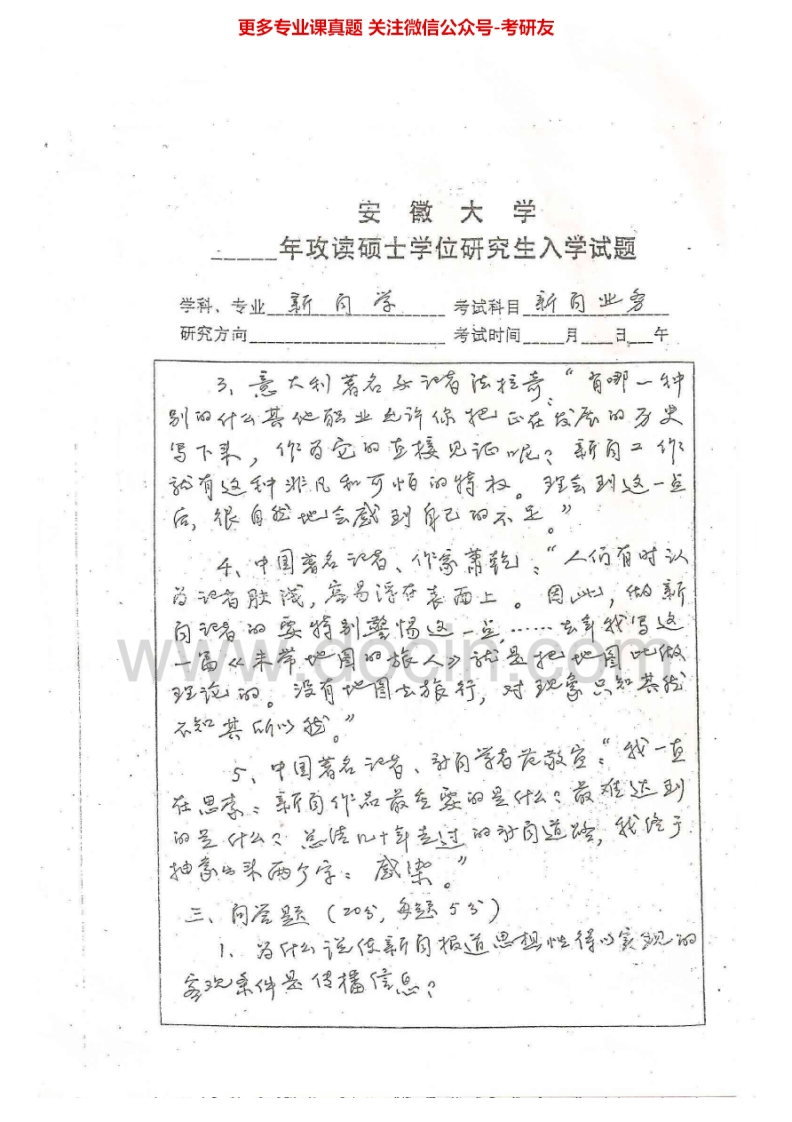 更多专业课真题 关注微信公众号-考研友
安 徽 大 学
_____年攻读硕士学位研究生入学试题
学科、专业 新闻学 考试科目 新闻业务
研究方向 考试时间____月___日___午
3、意大利著名女记者法拉奇:“有哪一种
别的什么其他职业允许你把正在发展的历史
写下来,作为它的直接见证呢?新闻工作
就有这种非凡和可怕的特权。理会到这一点
后,很自然地会感到自己的不足。”
4、中国著名记者、作家萧乾:“人们有时认
为记者肤浅,容易浮在表面上。因此,做新
闻记者的要特别警惕这一点,……去年我写这
一篇《未带地图的旅人》就是把地图比做
理论的。没有地图去旅行,对现象只知其然
不知其所以然。”
5、中国著名记者、新闻学者范敬宜:“我一直
在思索:新闻作品最重要的是什么?最难达到
的是什么?总结几十年走过的新闻道路,我终于
抽象出来两个字:感染。”
三、问答题(20分,每题5分)
1、为什么说使新闻报道思想性得以实现的
客观条件是传播信息?
www.docin.com